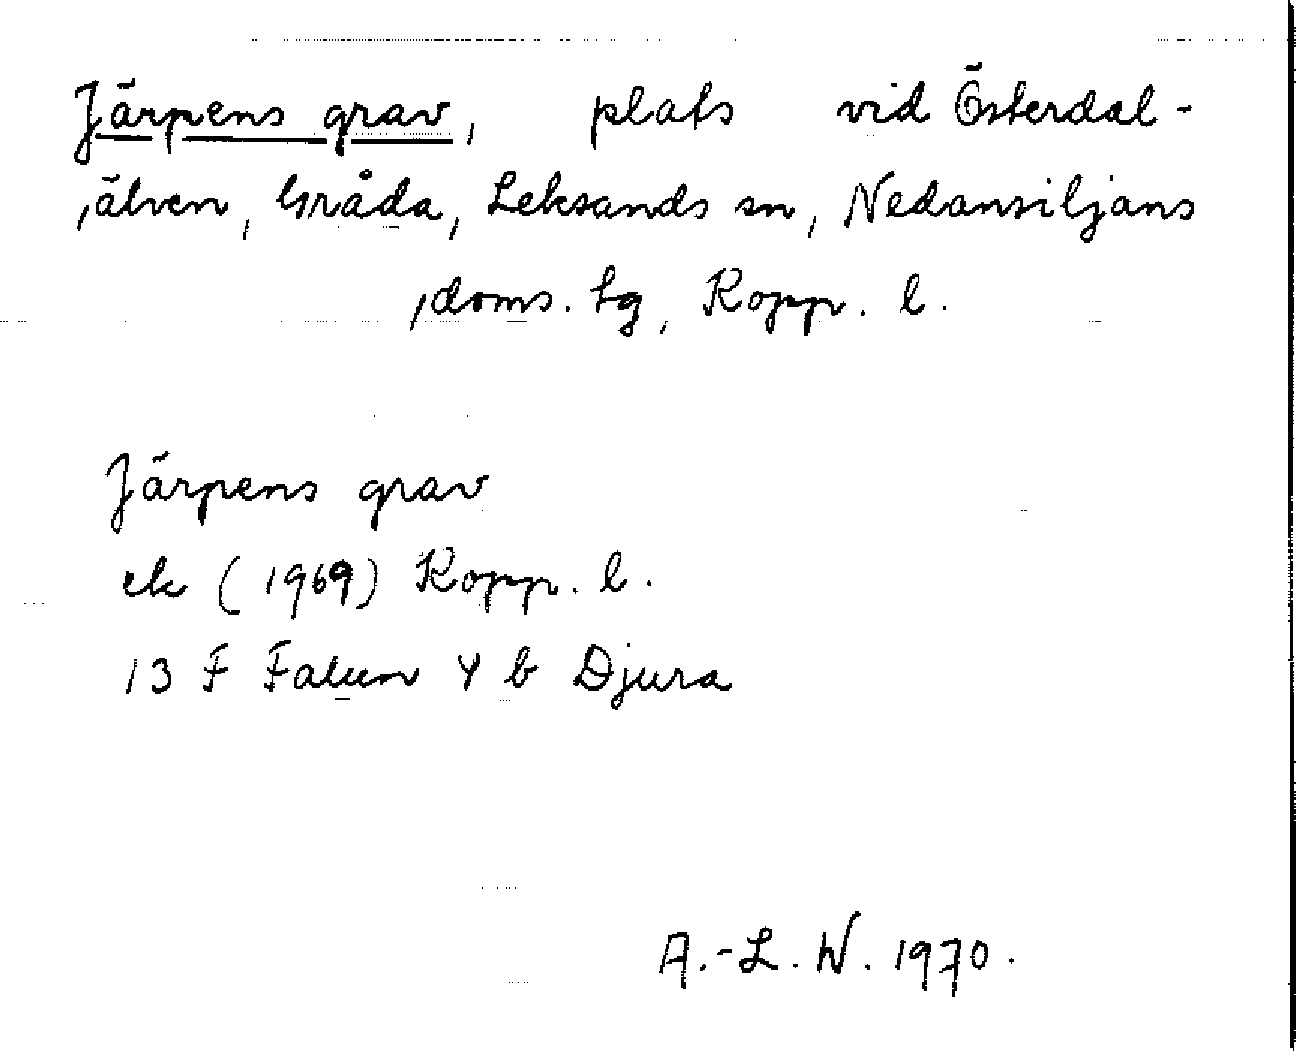 Järpens grav, plats vid Österdal-
älven, Gråda, Leksands sn, Nedansiljans
doms. tg, Kopp. l.
Järpens grav
ek (1969) Kopp. l.
13 F Falun 4 b Djura
A.-L. W. 1970.